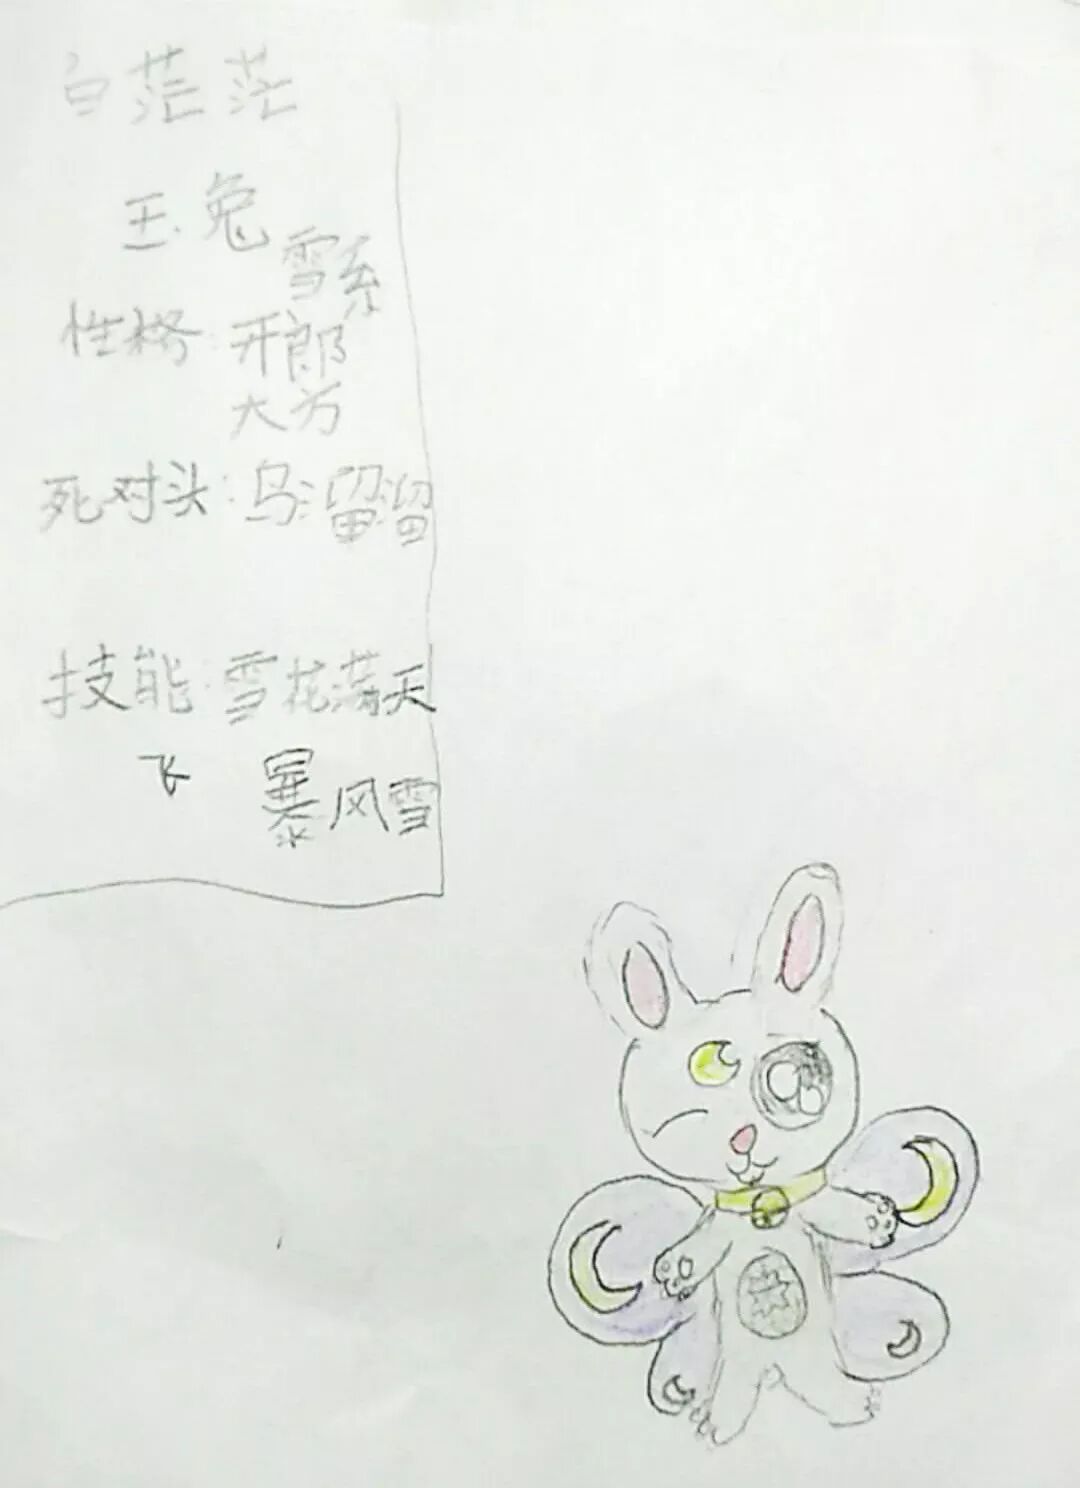 白茫茫
玉兔
雪系
性格:开郎
大方
死对头:乌溜溜
技能:雪花满天
飞 暴风雪